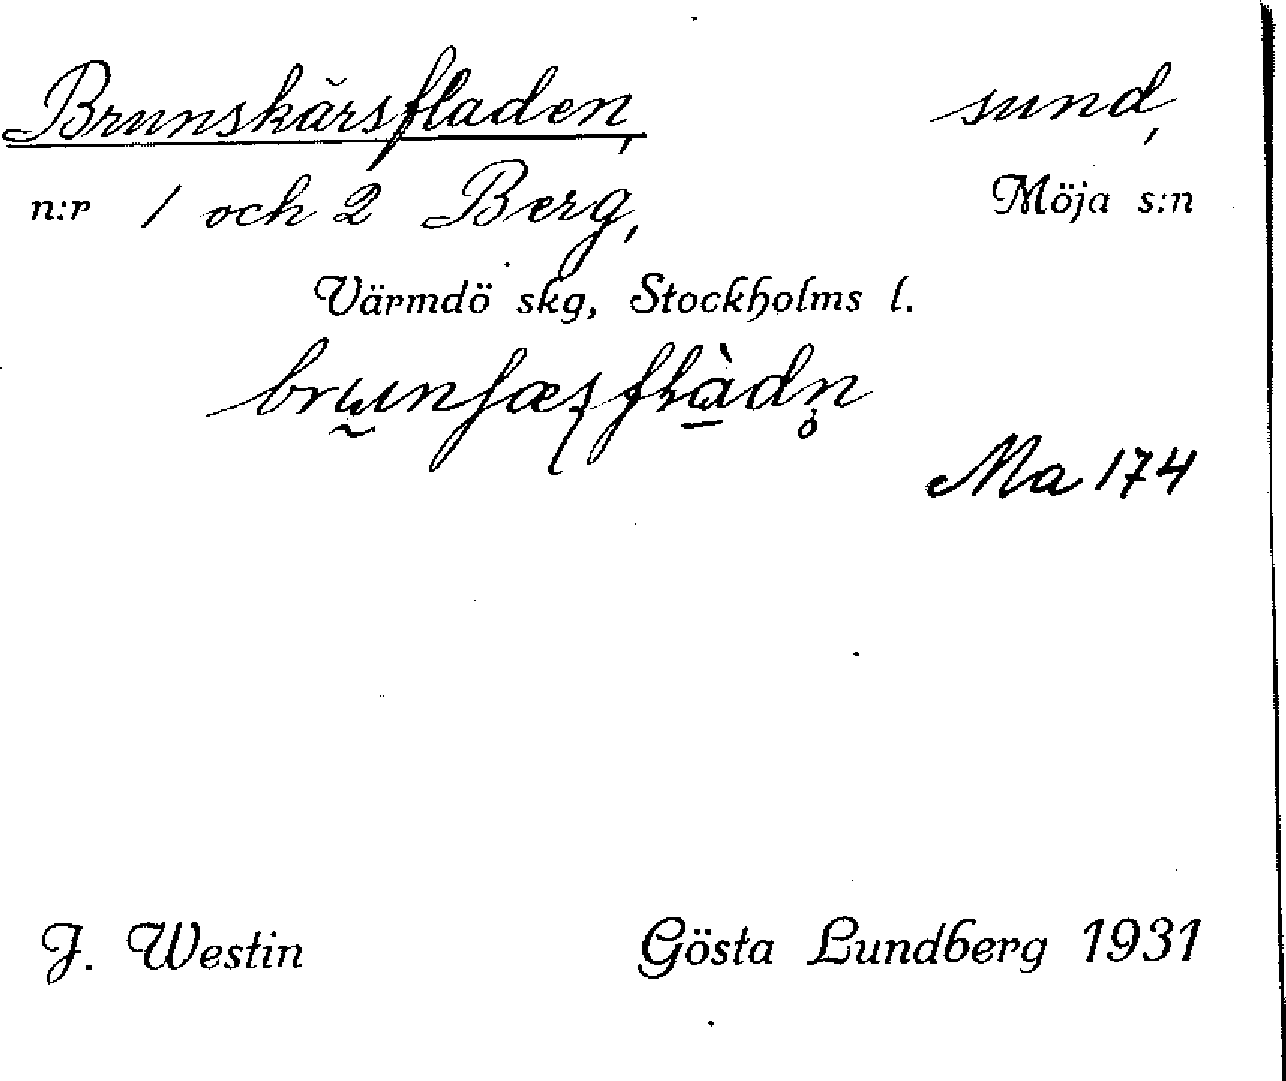 Brunskärsfladen, sund,
n:r 1 och 2 Berg, Möja s:n
Värmdö skg, Stockholms l.
Ma 174
J. Westin Gösta Lundberg 1931